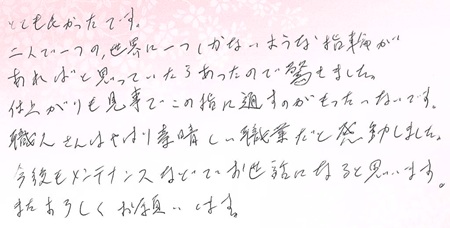 とても良かったです。
二人で一つの、世界に一つしかないような指輪が
あればと思っていたらあったので驚きました。
仕上がりも見事でこの指に通すのがもったいないです。
職人さんはやはり素晴しい職業だと感動しました。
今後もメンテナンスなどでお世話になると思います。
またよろしくお願いします。